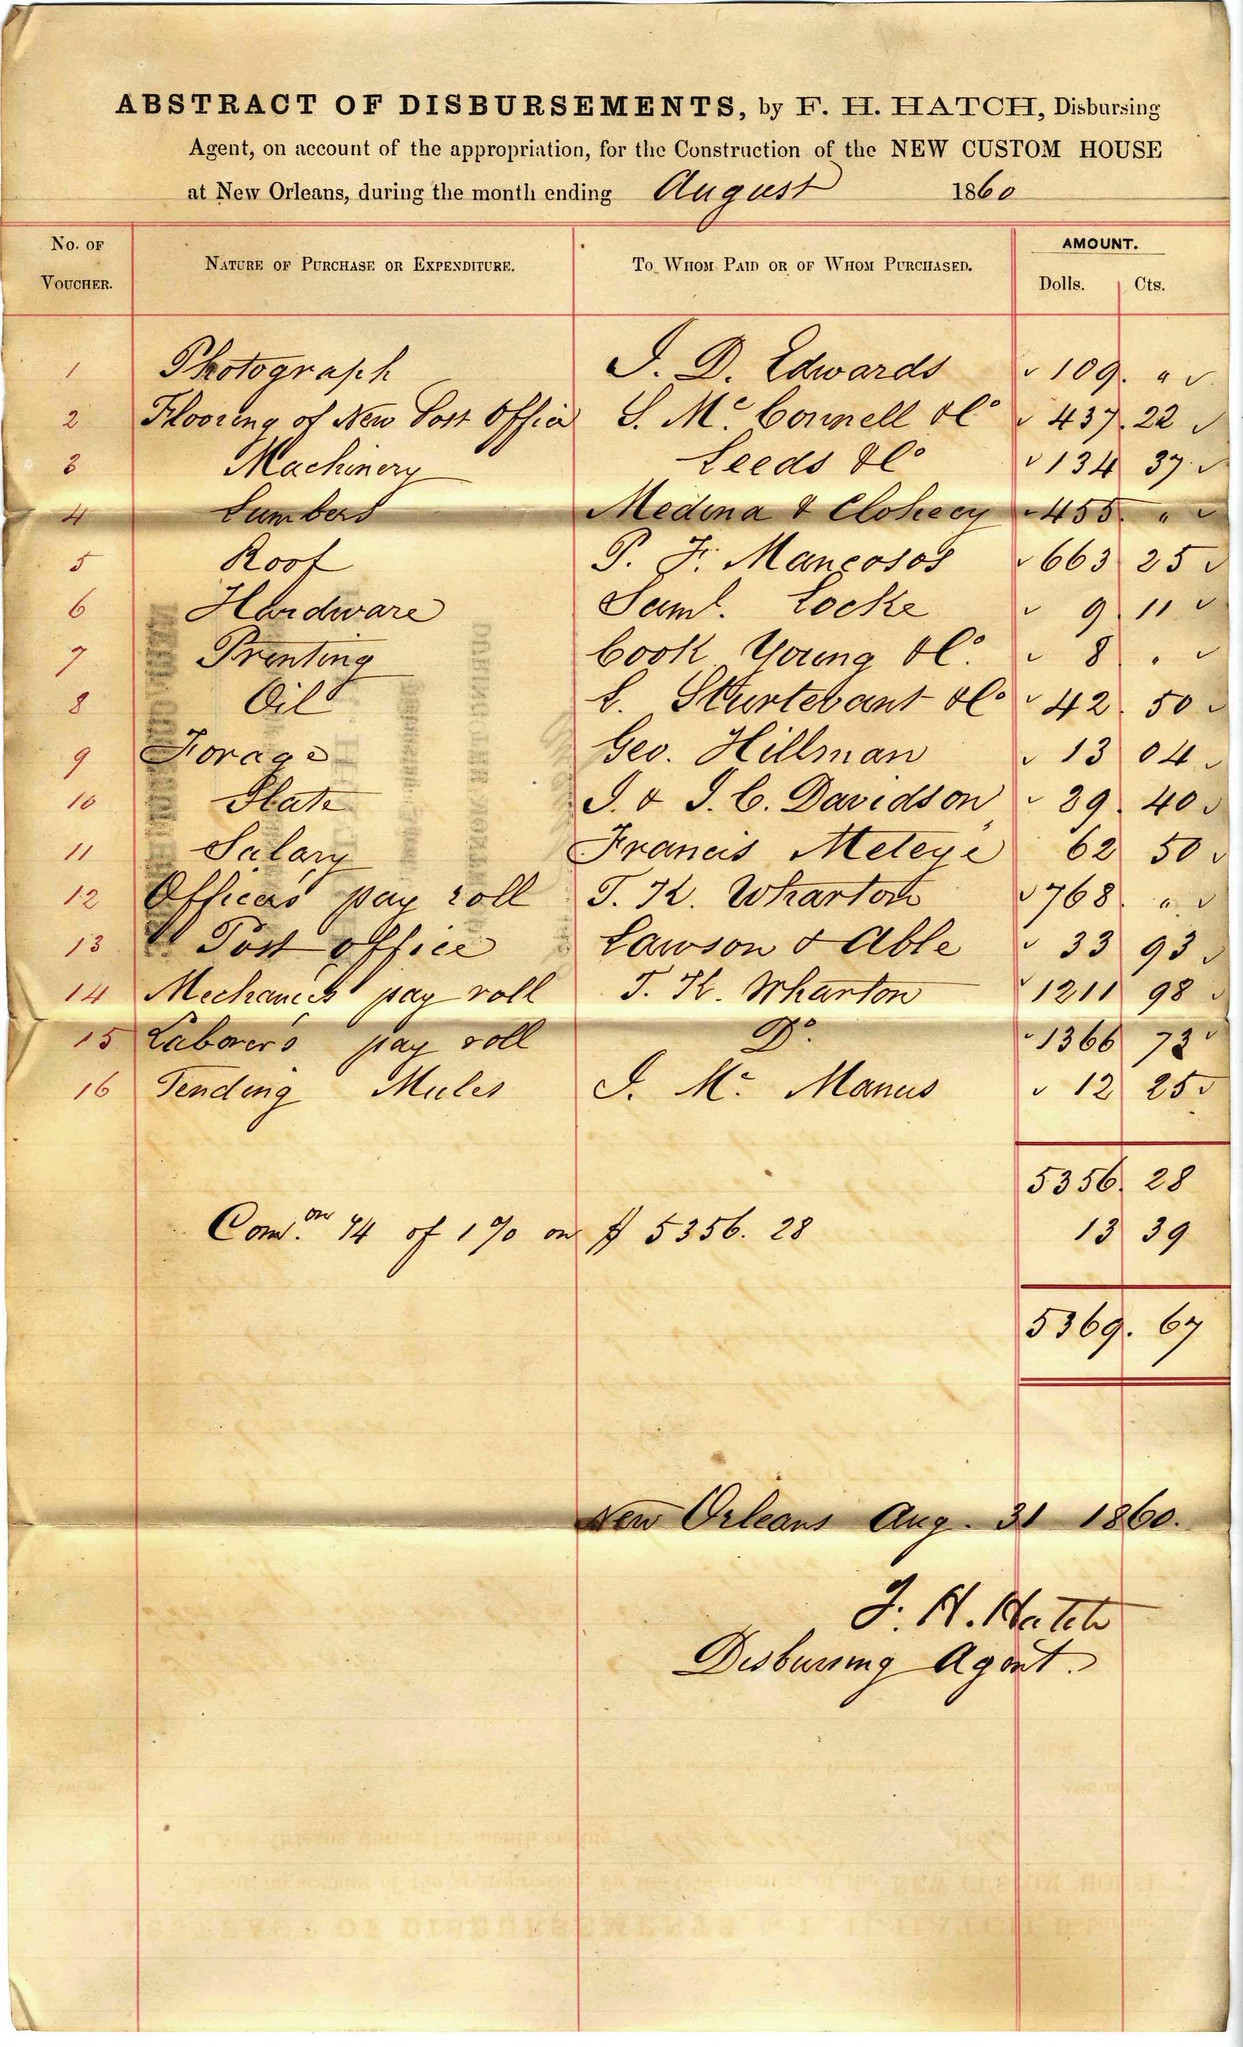 ABSTRACT OF DISBURSEMENTS, by F. H. HATCH, Disbursing
Agent, on account of the appropriation, for the Construction of the NEW CUSTOM HOUSE
at New Orleans, during the month ending August 1860
No. of Voucher. Nature of Purchase or Expenditure. To Whom Paid or of Whom Purchased. AMOUNT. Dolls. Cts.
1 Photograph J. D. Edwards 109. "
2 Flooring of New Post Office S. Mc Connell & Co 437. 22
3 Machinery Leeds & Co 134 37
4 Lumbers Medina & Clohecy 455. "
5 Roof P. F. Mancosos 663 25
6 Hardware Saml. Locke 9. 11
7 Printing Cook Young & Co. 8 "
8 Oil E. Sturtevant & Co 42. 50
9 Forage Geo. Hillman 13 04
10 Slate J. & J. C. Davidson 29. 40
11 Salary Francis Meteyé 62 50
12 Officers pay roll T. K. Wharton 768. "
13 " Post office Lawson & Able 33 93
14 Mechanics pay roll T. K. Wharton 1211 98
15 Laborer's pay roll Do. 1366 73
16 Tending Mules J. Mc Manus 12 25
5356. 28
Comon. 1/4 of 1% on $ 5356. 28 13 39
5369. 67
New Orleans Aug. 31 1860.
F. H. Hatch
Disbursing Agent.